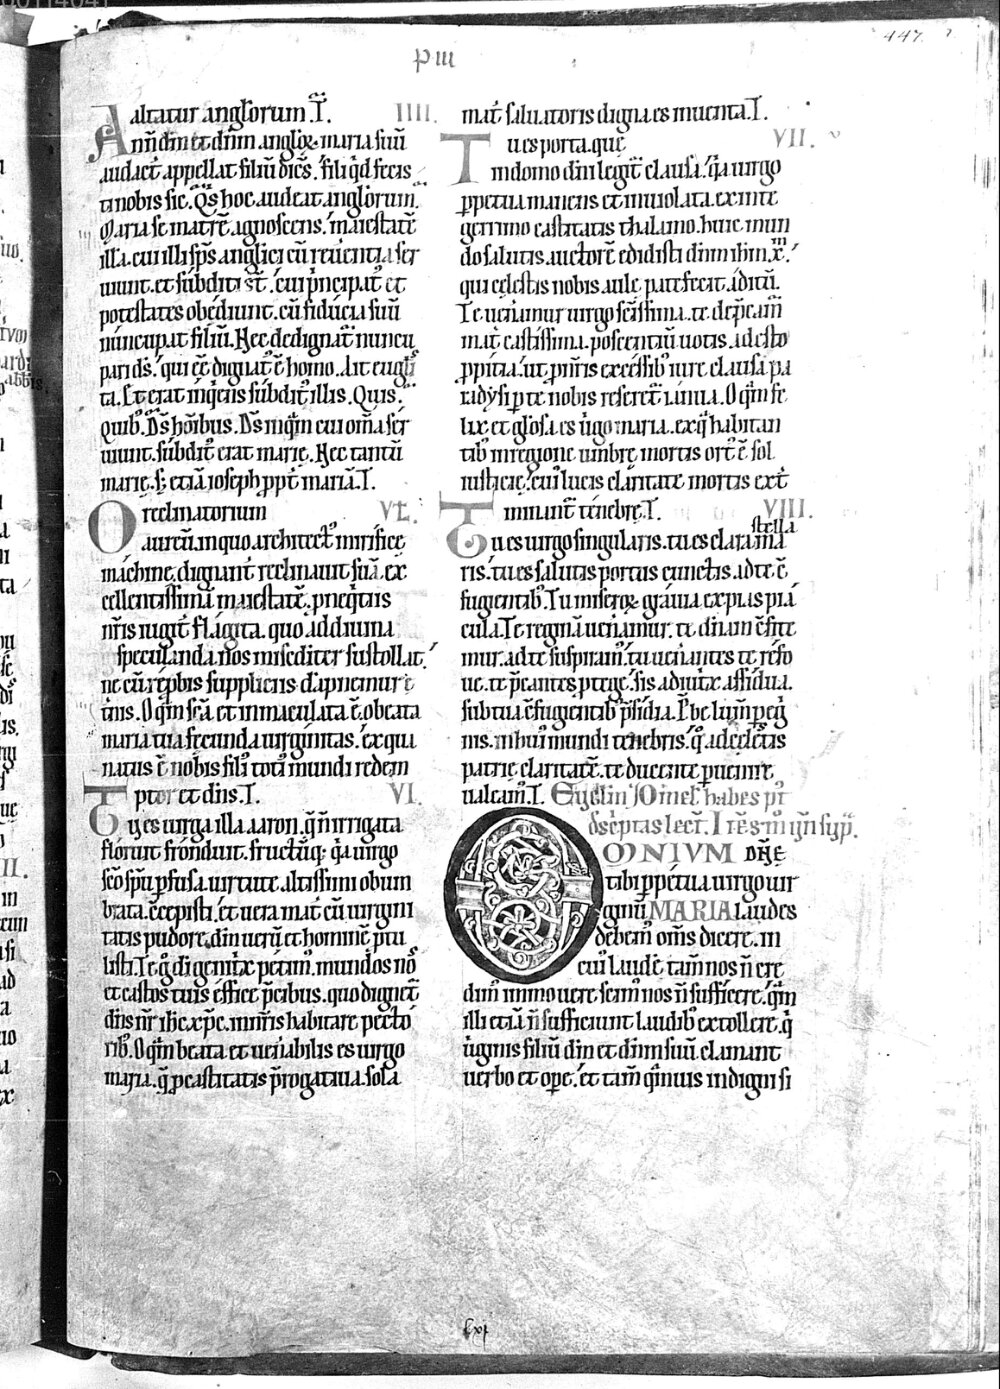 447
altatur anglorum. T. IIII.
Anñ dñm et dñm anglorꝝ maria suū
audact̄ appellat filiū dic̄es. fili qͥd fecis
ti nobis sic. Q̄s hoc audeat anglorum.
Maria se matrē agnoscens. maiestatē
illa. cui illi sp̄s anglici cū reuerentia ser
uiunt. et subditi st̄. cui principat᷒ et
potestates obediunt. cū fiducia suū
nuncupat filiū. Nec dedignat̄ nuncu
pari ds̄. qui eē dignat᷒ ē homo. Ait eugl̄is
ta. Et erat inqͥens subdit᷒ illis. Quis.
quib᷒. Ds̄ hoībus. Ds̄ inqͣm cui om̄ia ser
uiunt. subdit᷒ erat marie. Nec tantū
marie. s; etiā ioseph ꝓpt̄ mariā. T.
O reclinatorium VL.
aureū. in quo architect᷒ mirifice
machine. dignant̄ reclinauit suā. ex
cellentissimā maiestatē. p neqͥtiis
nr̄is iugit̄ flagita. quo ad diuina
speculanda nos misedit̄er sustollat.
ne cū rep̄bis suppliciis dāpnemur e
t̄nis. O qͣm sc̄a et inmaculata ē. o beata
maria tua fecunda uirginitas. ex qua
natus ē nobis fili᷒ toti᷒ mundi redem
ptor et dn̄s. T. VI.
Tu es uirga illa aaron. q̄ n̄ irrigata
floruit. fronduit. fructūq;. qͥa uirgo
sc̄o sp̄u ꝑfusa. uirtute altissimi obum
brata. cēcepisti. et uera mat̄ cū uirgini
tatis pudore. dm̄ uerū et hominē ptu
listi. Te g̊ di genit̄x petim᷒. mundos no᷒
et castos tuis effice p̄cibus. quo dignet̄
dn̄s nr̄ ih̄c xp̄c. in nr̄is habitare pecto
rib᷒. O qͣm beata et uenabilis es uirgo
maria. q̄ p castitatis p̄rogatiua. sola
mat̄ saluatoris digna es inuenta. T.
Tu es porta. que VII.
in domo dn̄i legit̄ clausa. qͥa uirgo
ꝑpetua manens et inuiolata. ex inte
gerrimo castitatis thalamo. huic mun
do salutis auctorē edidisti dn̄m ihm̄ x̄.
qui celestis nobis aule patefecit aditū.
Te ueneramur uirgo sc̄issima. te. dep̄camˀ
mat̄ castissima. poscentiū uotis. adesto
ꝓpitia. ut p nr̄is excessib᷒ iure clausa pa
radysi p te nobis referet̄ ianua. O qͣm fe
lix et gl̄osa es uͥgo maria. ex qͣ habitan
tib᷒ in regione umbre mortis ort᷒ ē sol
iusticie. cui᷒ lucis claritate mortis ext̄
minant̄ tenebre. T. VIII.
Tu es uirgo singularis. tu es clara ma
stella
ris. tu es salutis portus cunctis. ad te ē
fugientib᷒. Tu miserorꝝ grauia expias pia
cula. Te reginā ueneramur. te dn̄am ēfite
mur. ad te suspiram᷒. tu uen̄antes te refo
ue. te p̄cantes ptege. sis adiutͥx assidua.
sub tua ēfugientib᷒ p̄sidia.
nis. in hui᷒ mundi tenebris. qͣ ad celestis
patrie claritatē. te ducente peruenire
ualeam᷒. T.
OMNIVM
tibi ꝑpetua uirgo uir
ginū MARIA laudes
debem᷒ om̄s dicere. in
cui᷒ laudē tam̄ nos n̄ cre
dim᷒ immo uere scim᷒ nos n̄ sufficere. qͣm
illi etiā n̄ sufficiunt laudib᷒ extollere. q̄
uͥginis filiū dm̄ et dn̄m suū. clamant
uerbo et ope. et tam̄ qͣmuis indigni si
lxj